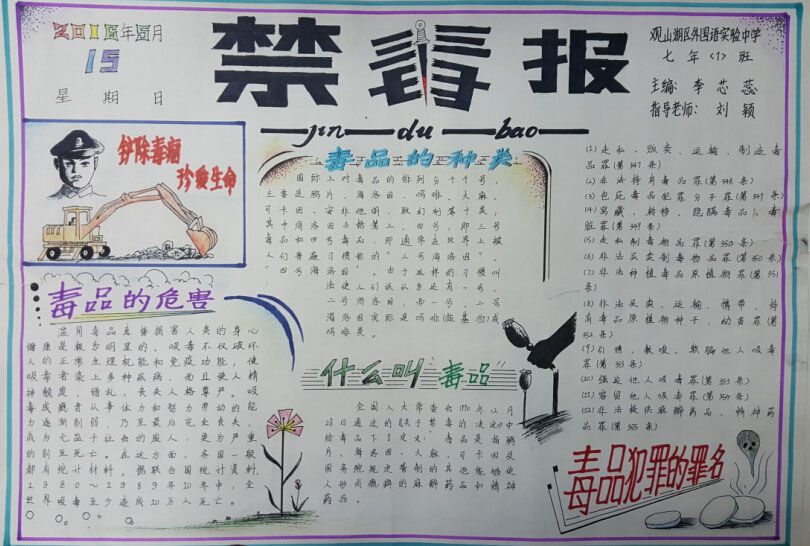 2016年5月
15
星期日
禁毒报
jin du bao
观山湖区外国语实验中学
七年〈1〉班
主编：李芯蕊
指导老师：刘颖
铲除毒瘤
珍爱生命
毒品的种类
国际上对毒品的排列分十个号，
主要是鸦片、海洛因、吗啡、大麻、
可卡因、安非他明、致幻剂等十类，
其中海洛因占据第三、四号，即三号
毒品和四号毒品，即通常在世界上被
人们普遍习惯称的"三号海洛因"、
"四号海洛因"，由于这样的习惯叫
法使人们误认为还有一号、
二号海洛因，而一号、二号
海洛因实际是吗啡(盐基类)或
吗啡类。
毒品的危害
滥用毒品直接损害人类的身心
健康是极为明显的，吸毒不仅破坏
人的正常生理机能和免疫功能，使
吸毒者染上多种疾病，而且使人精
神颓废、错乱，丧失人格尊严。吸
毒成瘾者从事体力和智力劳动的能
力逐渐削弱，乃至最后完全丧失，
成为无益于社会的废人，更为严重
的则至死亡。在这方面，各国一般
都有统计材料。据联合国统计资料，
1980～1989年10年中，全
世界吸毒至少造成10万人死亡。
什么叫"毒品"
全国人大常委会1990年12月
28日通过的《关于禁毒的决定》中
给毒品下了定义：毒品是指鸦
片、海洛因、吗啡、大麻、可卡因以及
国务院规定管制的其他能够使
人形成瘾癖的麻醉药品和精神
药品。
(1)走私、贩卖、运输、制造毒
品罪(第347条)
(2)非法持有毒品罪(第348条)
(3)包庇毒品犯罪分子罪(第349条)
(4)窝藏、转移、隐瞒毒品、毒
赃罪(第349条)
(5)走私制毒物品罪(第350条)
(6)非法买卖制毒物品罪(第350条)
(7)非法种植毒品原植物罪(第351
条)
(8)非法买卖、运输、携带、持
有毒品原植物种子、幼苗罪(第
352条)
(9)引诱、教唆、欺骗他人吸毒
罪(第353条)
(10)强迫他人吸毒罪(第353条)
(11)容留他人吸毒罪(第354条)
(12)非法提供麻醉药品、精神药
品罪(第355条)
毒品犯罪的罪名